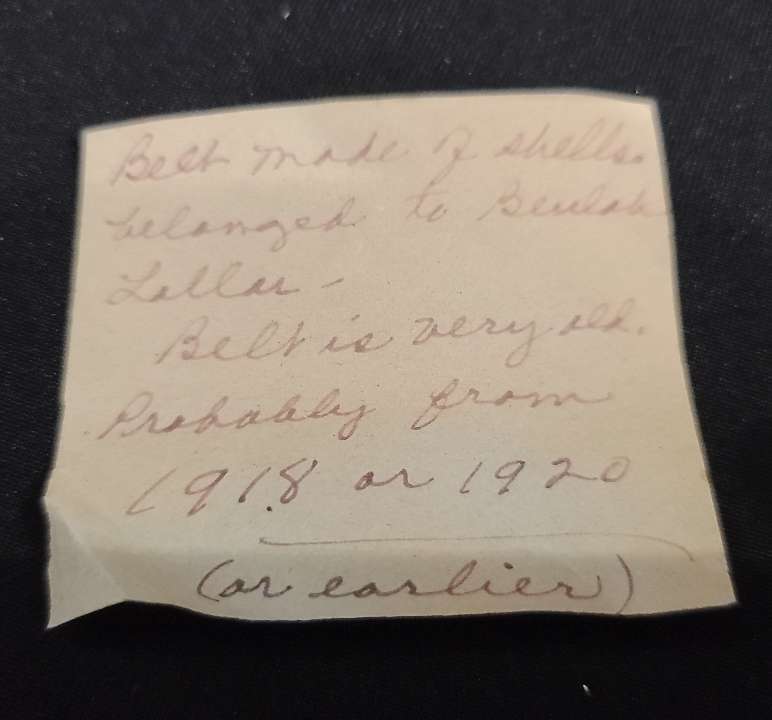 Belt made of shells.
belonged to Beulah
Lollar -
Belt is very old.
Probably from
1918 or 1920
(or earlier)